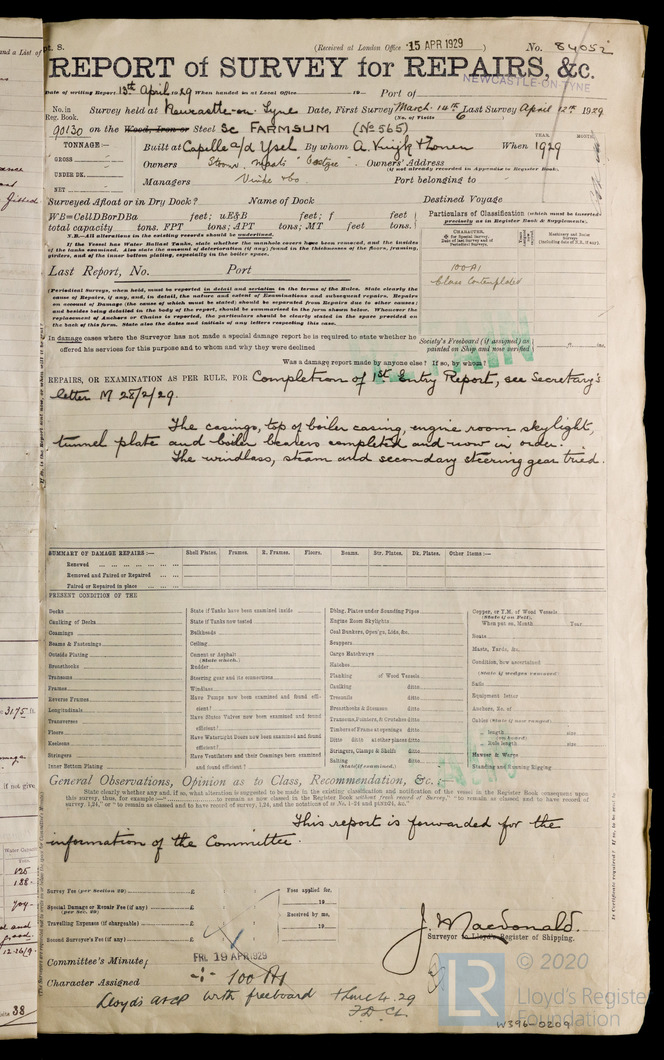 pt. 8.
(Received at London Office 15 APR 1929 )
No. 84052
REPORT of SURVEY for REPAIRS, &c.
NEWCASTLE-ON-TYNE
Date of writing Report 13th April 1929 When handed in at Local Office 19 Port of
No. in Reg. Book. Survey held at Newcastle-on-Tyne Date, First Survey March 14th Last Survey April 12th 1929
(No. of Visits 6
90130 on the Wood, Iron or Steel Sc FARMSUM (No 565)
TONNAGE:—
GROSS
UNDER DK.
NET
Built at Capelle a/d Ysel By whom A. Vuijk & Zonen When 1929
YEAR. MONTH.
Owners Owners' Address
(if not already recorded in Appendix to Register Book.)
Managers Vinke & Co Port belonging to
Surveyed Afloat or in Dry Dock? Name of Dock Destined Voyage
WB=CellDBorDBa feet; uE&B feet; f feet
total capacity tons. FPT tons; APT tons; MT feet tons.
N.B.—All alterations in the existing records should be underlined.
If the Vessel has Water Ballast Tanks, state whether the manhole covers have been removed, and the insides
of the tanks examined. Also state the amount of deterioration (if any) found in the thickness of the floors, framing,
girders, and of the inner bottom plating, especially in the boiler space.
Particulars of Classification (which must be inserted
precisely as in Register Book & Supplements.)
CHARACTER.
100 A1
Class Contemplated
Last Report, No. Port
(Periodical Surveys, when held, must be reported in detail and seriatim in the terms of the Rules. State clearly the
cause of Repairs, if any, and, in detail, the nature and extent of Examinations and subsequent repairs. Repairs
on account of Damage (the cause of which must be stated) should be separated from Repairs due to other causes;
and besides being detailed in the body of the report, should be summarised in the form shown below. Whenever the
replacement of Anchors or Chains is reported, the particulars should be clearly stated in the space provided on
the back of this form. State also the dates and initials of any letters respecting this case.
In damage cases where the Surveyor has not made a special damage report he is required to state whether he
offered his services for this purpose and to whom and why they were declined
Society's Freeboard (if assigned) as
painted on Ship and now verified
Was a damage report made by anyone else? If so, by whom?
REPAIRS, OR EXAMINATION AS PER RULE, FOR Completion of 1st Entry Report, see Secretary's
letter M 28/2/29.
The casings, top of boiler casing, engine room skylight,
tunnel plate and boiler bearers completed and now in order.
The windlass, steam and secondary steering gear tried.
SUMMARY OF DAMAGE REPAIRS:—
Shell Plates. Frames. R. Frames. Floors. Beams. Str. Plates. Dk. Plates. Other Items:—
Renewed
Removed and Faired or Repaired
Faired or Repaired in place
PRESENT CONDITION OF THE
Decks
Caulking of Decks
Coamings
Beams & Fastenings
Outside Plating
Breasthooks
Transoms
Frames
Reverse Frames
Longitudinals
Transverses
Floors
Keelsons
Stringers
Inner Bottom Plating
State if Tanks have been examined inside
State if Tanks now tested
Bulkheads
Ceiling
Cement or Asphalt
(State which.)
Rudder
Steering gear and its connections
Windlass
Have Pumps now been examined and found effi-
cient?
Have Sluice Valves now been examined and found
efficient?
Have Watertight Doors now been examined and found
efficient?
Have Ventilators and their Coamings been examined
and found efficient?
Dblng. Plates under Sounding Pipes
Engine Room Skylights
Coal Bunkers, Open'gs, Lids, &c.
Scuppers
Cargo Hatchways
Hatches
Planking of Wood Vessels
Caulking ditto
Treenails ditto
Breasthooks & Stemson ditto
Transoms, Pointers, & Crutches ditto
Timbers of Frame at openings ditto
Ditto Ditto at other places ditto
Stringers, Clamps & Shelfs ditto
Salting ditto
(State if examined.)
Copper, or Y.M. of Wood Vessels
(State if on Felt).
When put on, Month Year
Boats
Masts, Yards, &c.
Condition, how ascertained
(State if wedges removed)
Sails
Equipment letter
Anchors, No. of
Cables (State if now ranged)
length size
Hawser & Warps
Standing and Running Rigging
General Observations, Opinion as to Class, Recommendation, &c.:—
State clearly whether any and, if so, what alteration is suggested to be made in the existing classification and notification of the vessel in the Register Book consequent upon
This report is forwarded for the
information of the Committee.
Survey Fee (per Section 29) £
Special Damage or Repair Fee (if any) £
(per Sec. 29)
Travelling Expenses (if chargeable) £
Second Surveyor's Fee (if any) £
Fees applied for,
19
Received by me,
19
J. Macdonald.
Surveyor to Lloyd's Register of Shipping.
Committee's Minute
FRI. 19 APR. 1929
Character Assigned 100 A1
Lloyd's A&CP with freeboard
© 2020
LR
Lloyd's Registe
Foundation
W396-0209